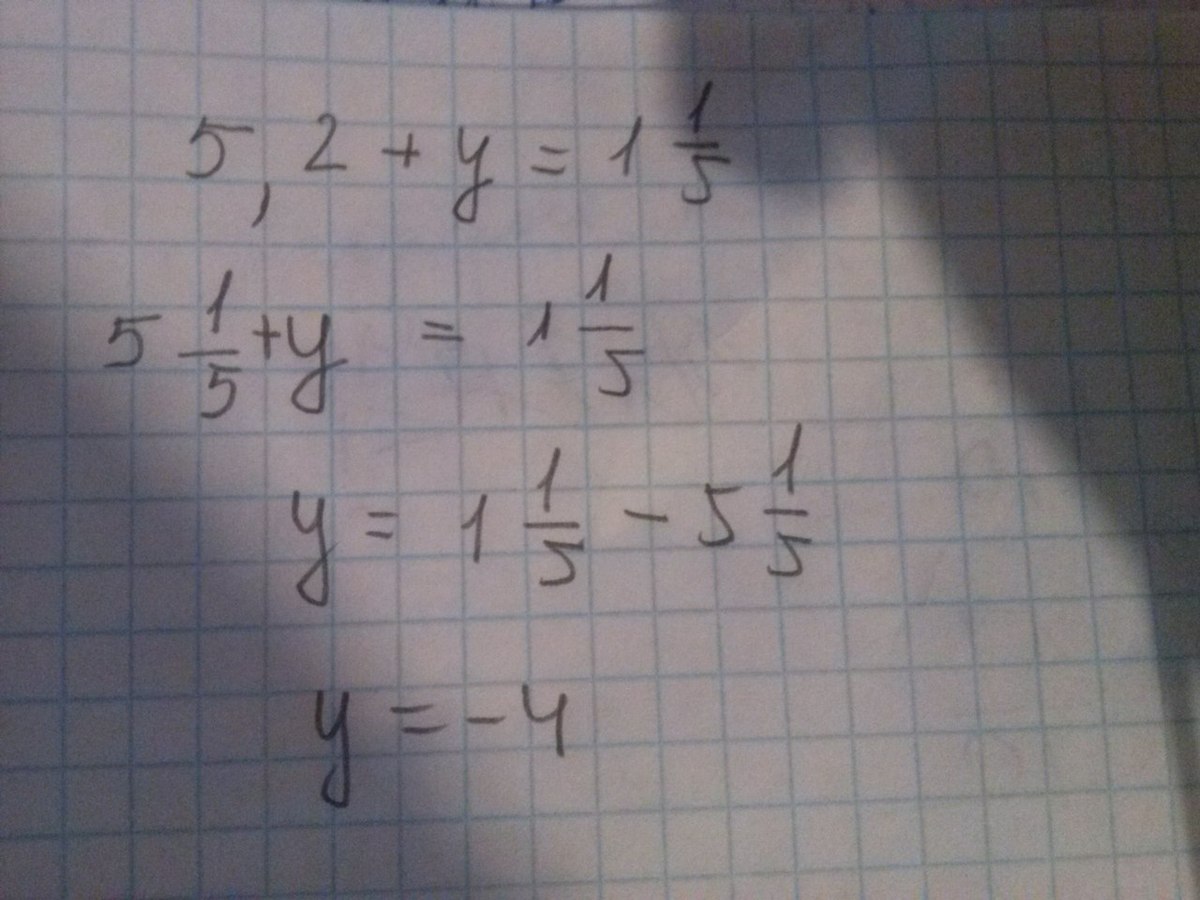 5,2 + y = 1 1/5
5 1/5 + y = 1 1/5
y = 1 1/5 - 5 1/5
y = -4